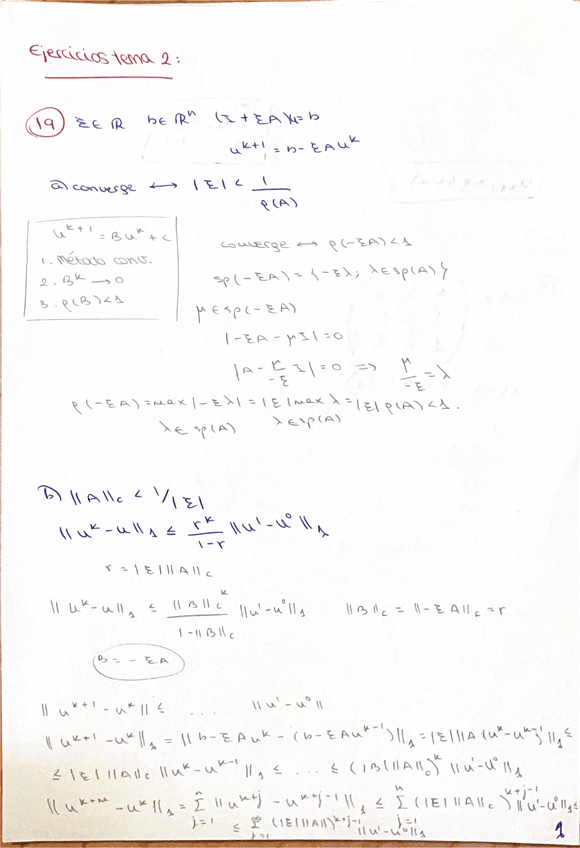 Ejercicios tema 2:
19 Ɛ∈ℝ b∈ℝⁿ (I+ƐA)u=b
u^{k+1} = b-ƐAu^k
a) converge ⟷ |Ɛ| < 1/ρ(A)
u^{k+1} = Bu^k + c
1. Método conv.
2. B^k → 0
3. ρ(B)<1
converge ⟷ ρ(-ƐA)<1
sp(-ƐA) = {-Ɛλ; λ∈sp(A)}
μ∈sp(-ƐA)
|-ƐA-μI|=0
|A - μ/-Ɛ I|=0 ⟹ μ/-Ɛ = λ
ρ(-ƐA)=max|-Ɛλ| = |Ɛ| max λ = |Ɛ| ρ(A)<1.
λ∈sp(A) λ∈sp(A)
b) ||A||_c < 1/|Ɛ|
||u^k-u||_1 ≤ r^k/1-r ||u^1-u^0||_1
r = |Ɛ| ||A||_c
||u^k-u||_1 ≤ ||B||_c^k / 1-||B||_c ||u^1-u^0||_1 ||B||_c = ||-ƐA||_c = r
B = -ƐA
||u^{k+1}-u^k|| ≤ .... ||u^1-u^0||
||u^{k+1}-u^k||_1 = ||b-ƐAu^k-(b-ƐAu^{k-1})||_1 = |Ɛ| ||A(u^k-u^{k-1})||_1 ≤
≤ |Ɛ| ||A||_c ||u^k-u^{k-1}||_1 ≤ ... ≤ (|Ɛ| ||A||_c)^k ||u^1-u^0||_1
||u^{k+m}-u^k||_1 = Σ_{j=1}^n ||u^{k+j}-u^{k+j-1}||_1 ≤ Σ_{j=1}^n (|Ɛ| ||A||_c)^{k+j-1} ||u^1-u^0||_1 ≤
≤ Σ_{j=1}^∞ (|Ɛ| ||A||)^{k+j-1} ||u^1-u^0||_1
1